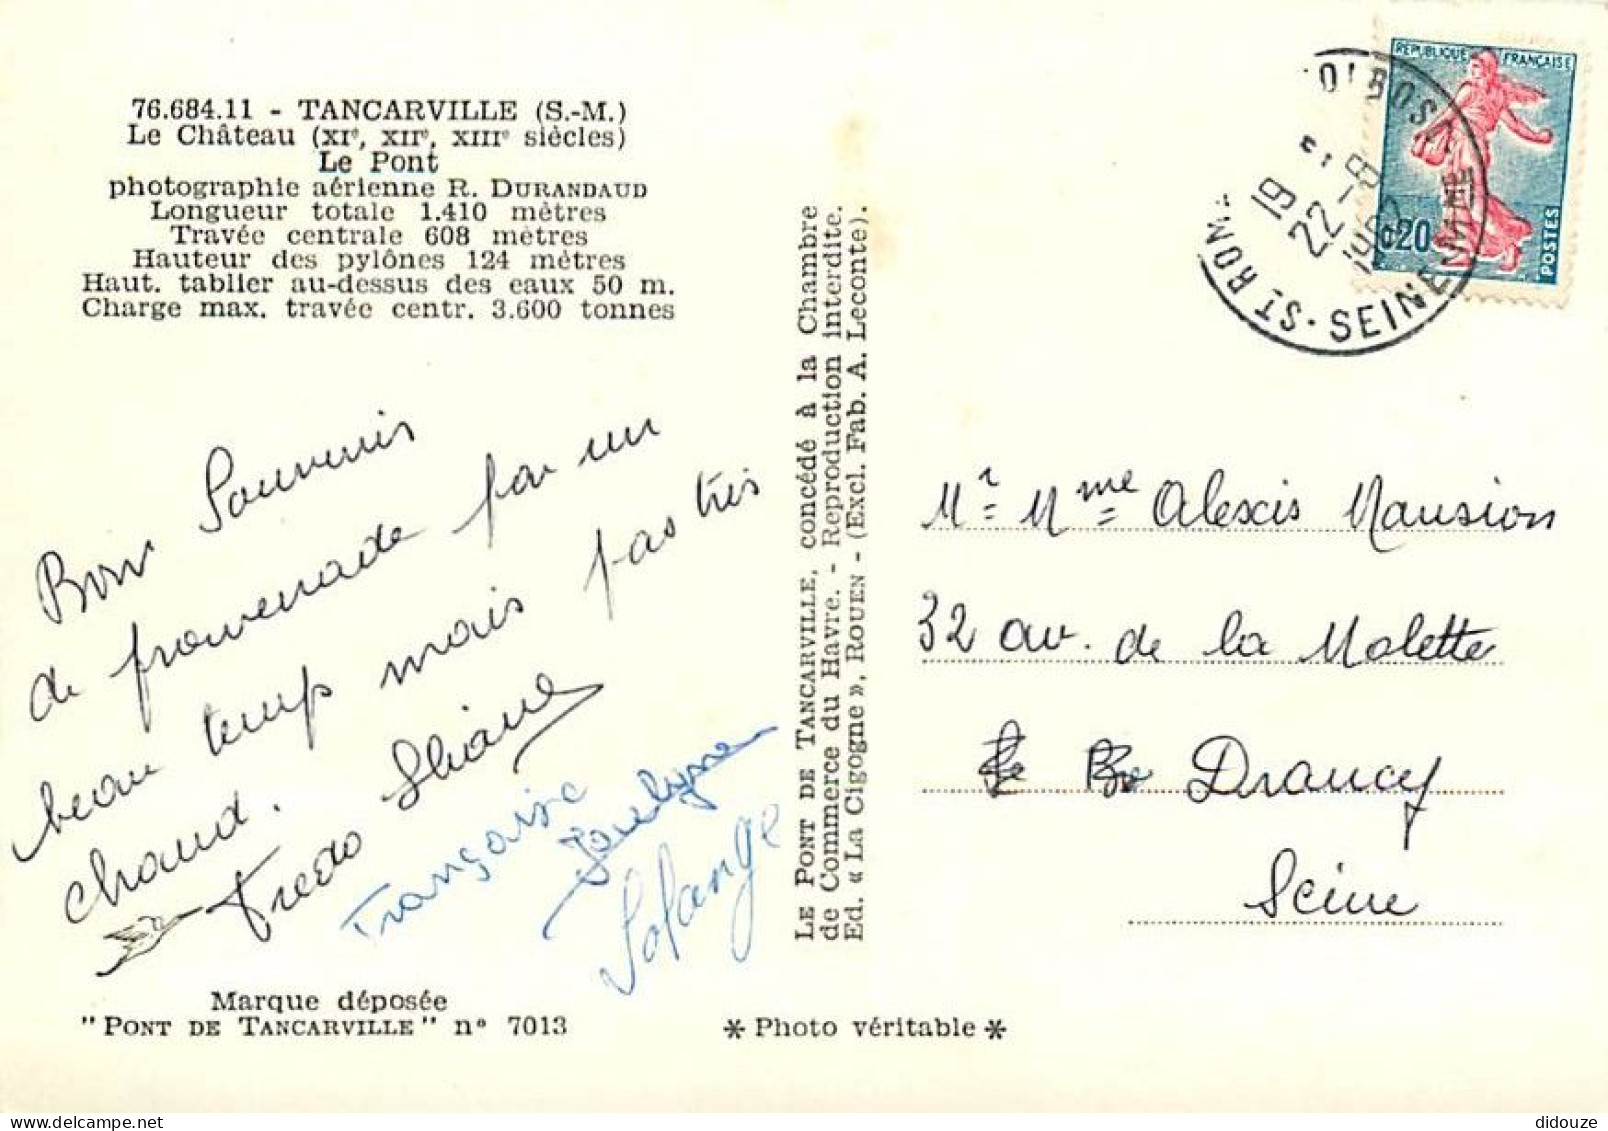 76.684.11 - TANCARVILLE (S.-M.)
Le Château (XIe, XIIe, XIIIe siècles)
Le Pont
photographie aérienne R. DURANDAUD
Longueur totale 1.410 mètres
Travée centrale 608 mètres
Hauteur des pylônes 124 mètres
Haut. tablier au-dessus des eaux 50 m.
Charge max. travée centr. 3.600 tonnes
Bon Souvenir
de promenade par un
beau temps mais pas très
chaud.
Fredo
Françoise
Jocelyne
Solange
Marque déposée
"PONT DE TANCARVILLE" n° 7013
* Photo véritable *
LE PONT DE TANCARVILLE, concédé à la Chambre
de Commerce du Havre. - Reproduction interdite.
Ed. « La Cigogne », ROUEN - (Excl. Fab. A. Leconte).
REPUBLIQUE FRANÇAISE
0,20
POSTES
ST ROMAIN
SEINE MME
19
22-8
Mr Mme Alexis Mansion
32 av. de la Molette
Drancy
Seine
didouze